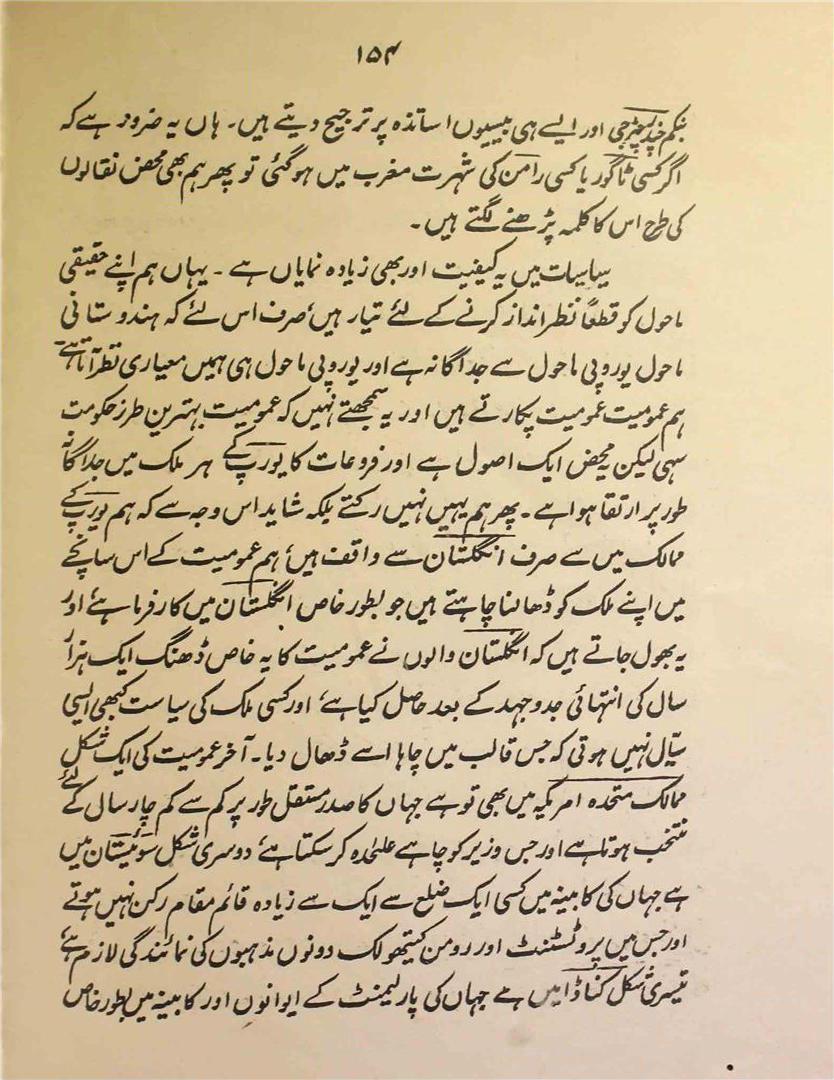 ۱۵۴
بنکم چندر چٹرجی اور ایسے ہی بیسیوں اساتذہ پر ترجیح دیتے ہیں۔ ہاں یہ ضرور ہے کہ
اگر کسی ٹاگور یا کسی رامن کی شہرت مغرب میں ہوگئی تو پھر ہم بھی محض نقالوں
کی طرح اس کا کلمہ پڑھنے لگتے ہیں۔
سیاسیات میں یہ کیفیت اور بھی زیادہ نمایاں ہے۔ یہاں ہم اپنے حقیقی
ماحول کو قطعاً نظر انداز کرنے کے لئے تیار ہیں، صرف اس لئے کہ ہندوستانی
ماحول یوروپی ماحول سے جداگانہ ہے اور یوروپی ماحول ہی ہمیں معیاری نظر آتا ہے۔
ہم عمومیت عمومیت پکارتے ہیں اور یہ سمجھتے نہیں کہ عمومیت بہترین طرز حکومت
سہی لیکن یہ محض ایک اصول ہے اور فروعات کا یورپ کے ہر ملک میں جداگانہ
طور پر ارتقا ہوا ہے۔ پھر ہم یہیں نہیں رکتے بلکہ شاید اس وجہ سے کہ ہم یورپ کے
ممالک میں سے صرف انگلستان سے واقف ہیں، ہم عمومیت کے اس سانچے
میں اپنے ملک کو ڈھالنا چاہتے ہیں جو بطور خاص انگلستان میں کارفرما ہے، اور
یہ بھول جاتے ہیں کہ انگلستان والوں نے عمومیت کا یہ خاص ڈھنگ ایک ہزار
سال کی انتہائی جدوجہد کے بعد حاصل کیا ہے، اور کسی ملک کی سیاست کبھی ایسی
سیّال نہیں ہوتی کہ جس قالب میں چاہا اسے ڈھال دیا۔ آخر عمومیت کی ایک شکل
ممالک متحدہ امریکہ میں بھی تو ہے جہاں کا صدر مستقل طور پر کم سے کم چار سال کے لئے
منتخب ہوتا ہے اور جس وزیر کو چاہے علیحدہ کر سکتا ہے، دوسری شکل سوئیستان میں
ہے جہاں کی کابینہ میں کسی ایک ضلع سے ایک سے زیادہ قائم مقام رکن نہیں ہوتے
اور جس میں پروٹسٹنٹ اور رومن کیتھولک دونوں مذہبوں کی نمائندگی لازم ہے،
تیسری شکل کناڈا میں ہے جہاں کی پارلیمنٹ کے ایوانوں اور کابینہ میں بطور خاص